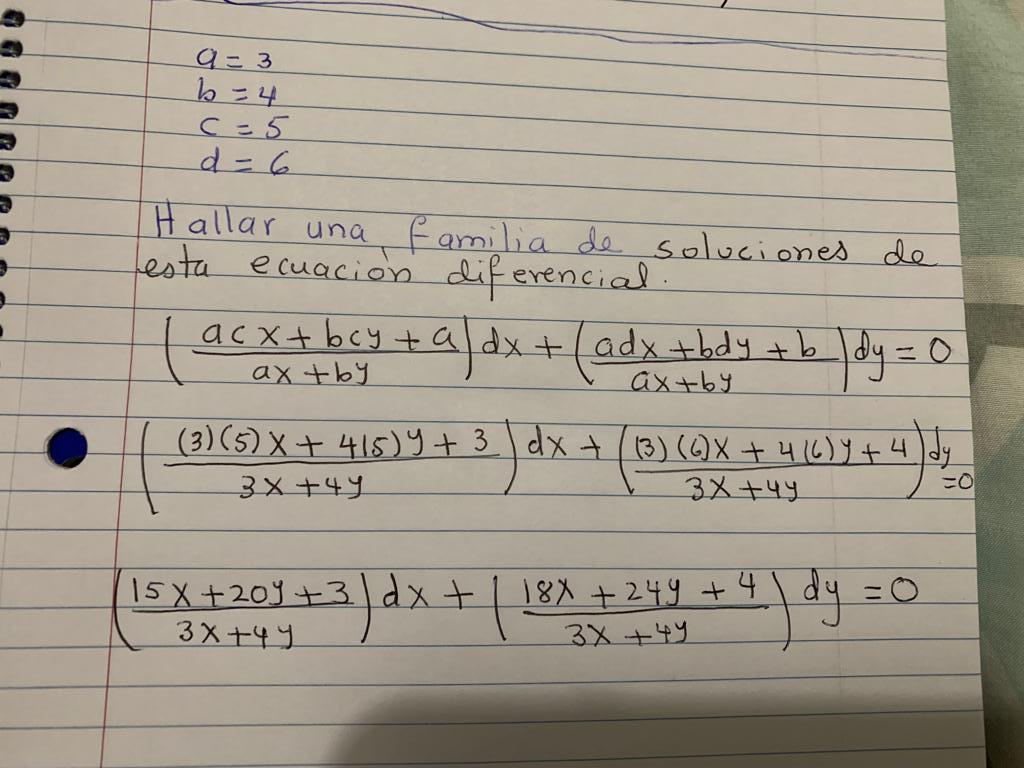 a = 3
b = 4
c = 5
d = 6
Hallar una familia de soluciones de
esta ecuación diferencial.
(acx + bcy + a / ax + by) dx + (adx + bdy + b / ax + by) dy = 0
((3)(5)x + 4(5)y + 3 / 3x + 4y) dx + ((3)(6)x + 4(6)y + 4 / 3x + 4y) dy = 0
(15x + 20y + 3 / 3x + 4y) dx + (18x + 24y + 4 / 3x + 4y) dy = 0